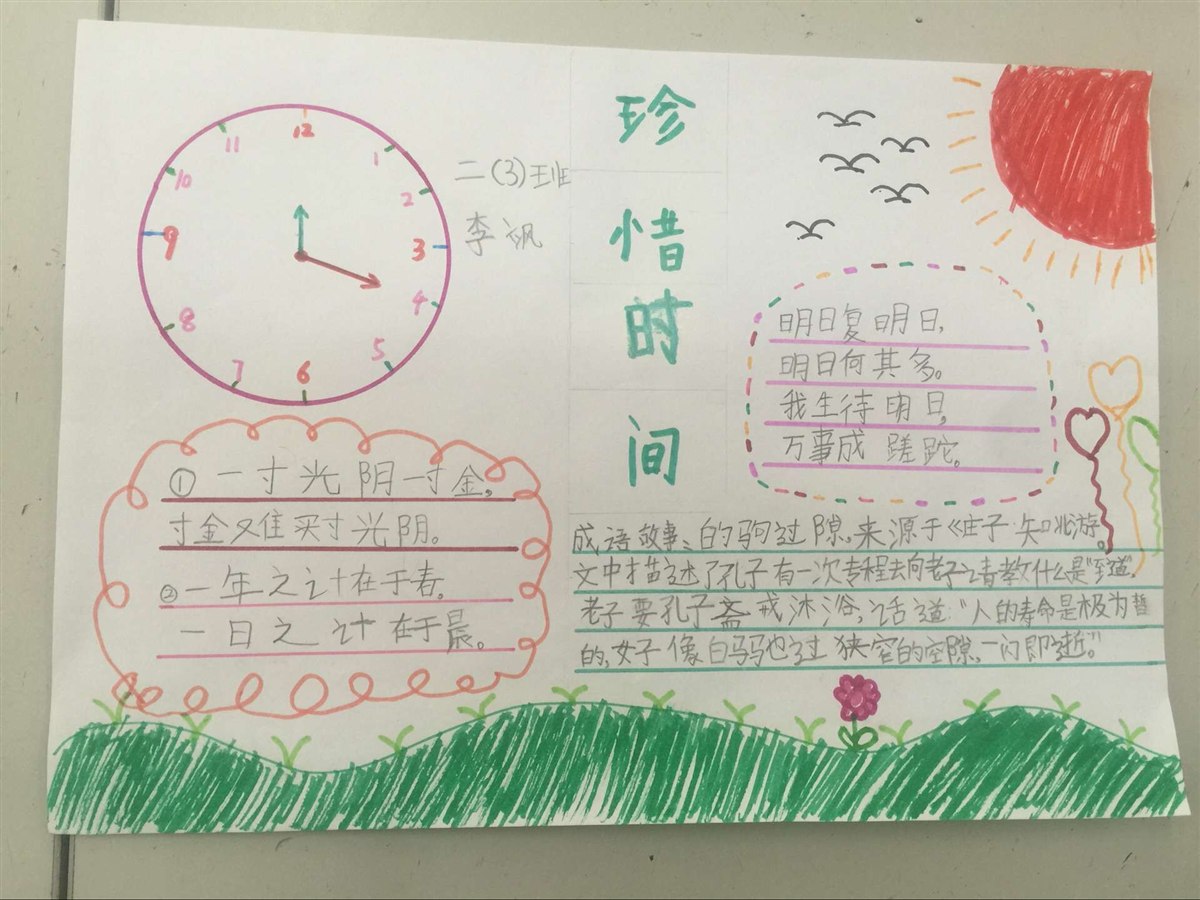 12
1
2
3
4
5
6
7
8
9
10
11
二(3)班
李飒
珍
惜
时
间
①一寸光阴一寸金,
寸金难买寸光阴。
②一年之计在于春。
一日之计在于晨。
明日复明日,
明日何其多。
我生待明日,
万事成蹉跎。
成语故事:白驹过隙,来源于《庄子·知北游。
文中描述了孔子有一次专程去向老子请教什么是"至道",
老子要孔子斋戒沐浴,话道:"人的寿命是极为暂
的,好像白马也过狭窄的空隙,一闪即逝"